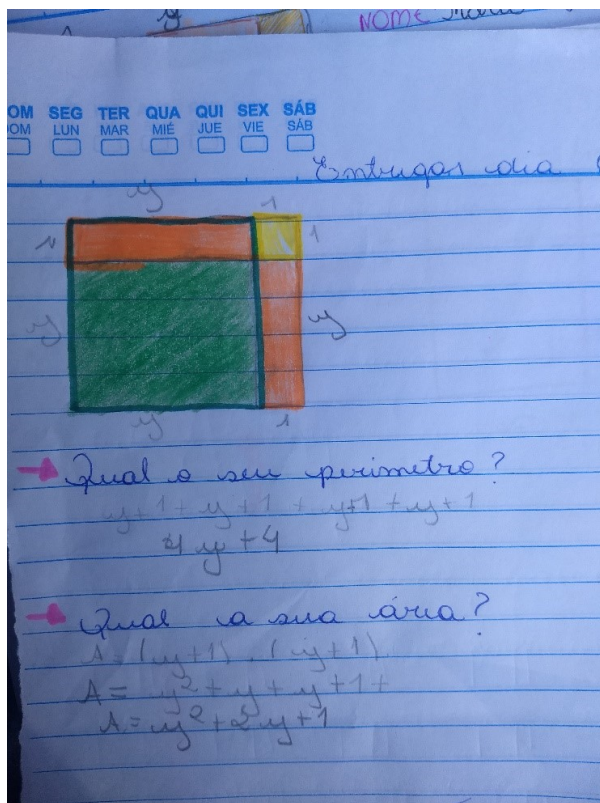 y
NOME
OM SEG TER QUA QUI SEX SÁB
OM LUN MAR MIÉ JUE VIE SÁB
Entregar dia
y 1
1 1
y y
y 1
Qual o seu perimetro?
y+1+y+1+y+1+y+1
4y+4
Qual a sua área?
A=(y+1).(y+1)
A= y²+y+y+1+
A=y²+2y+1